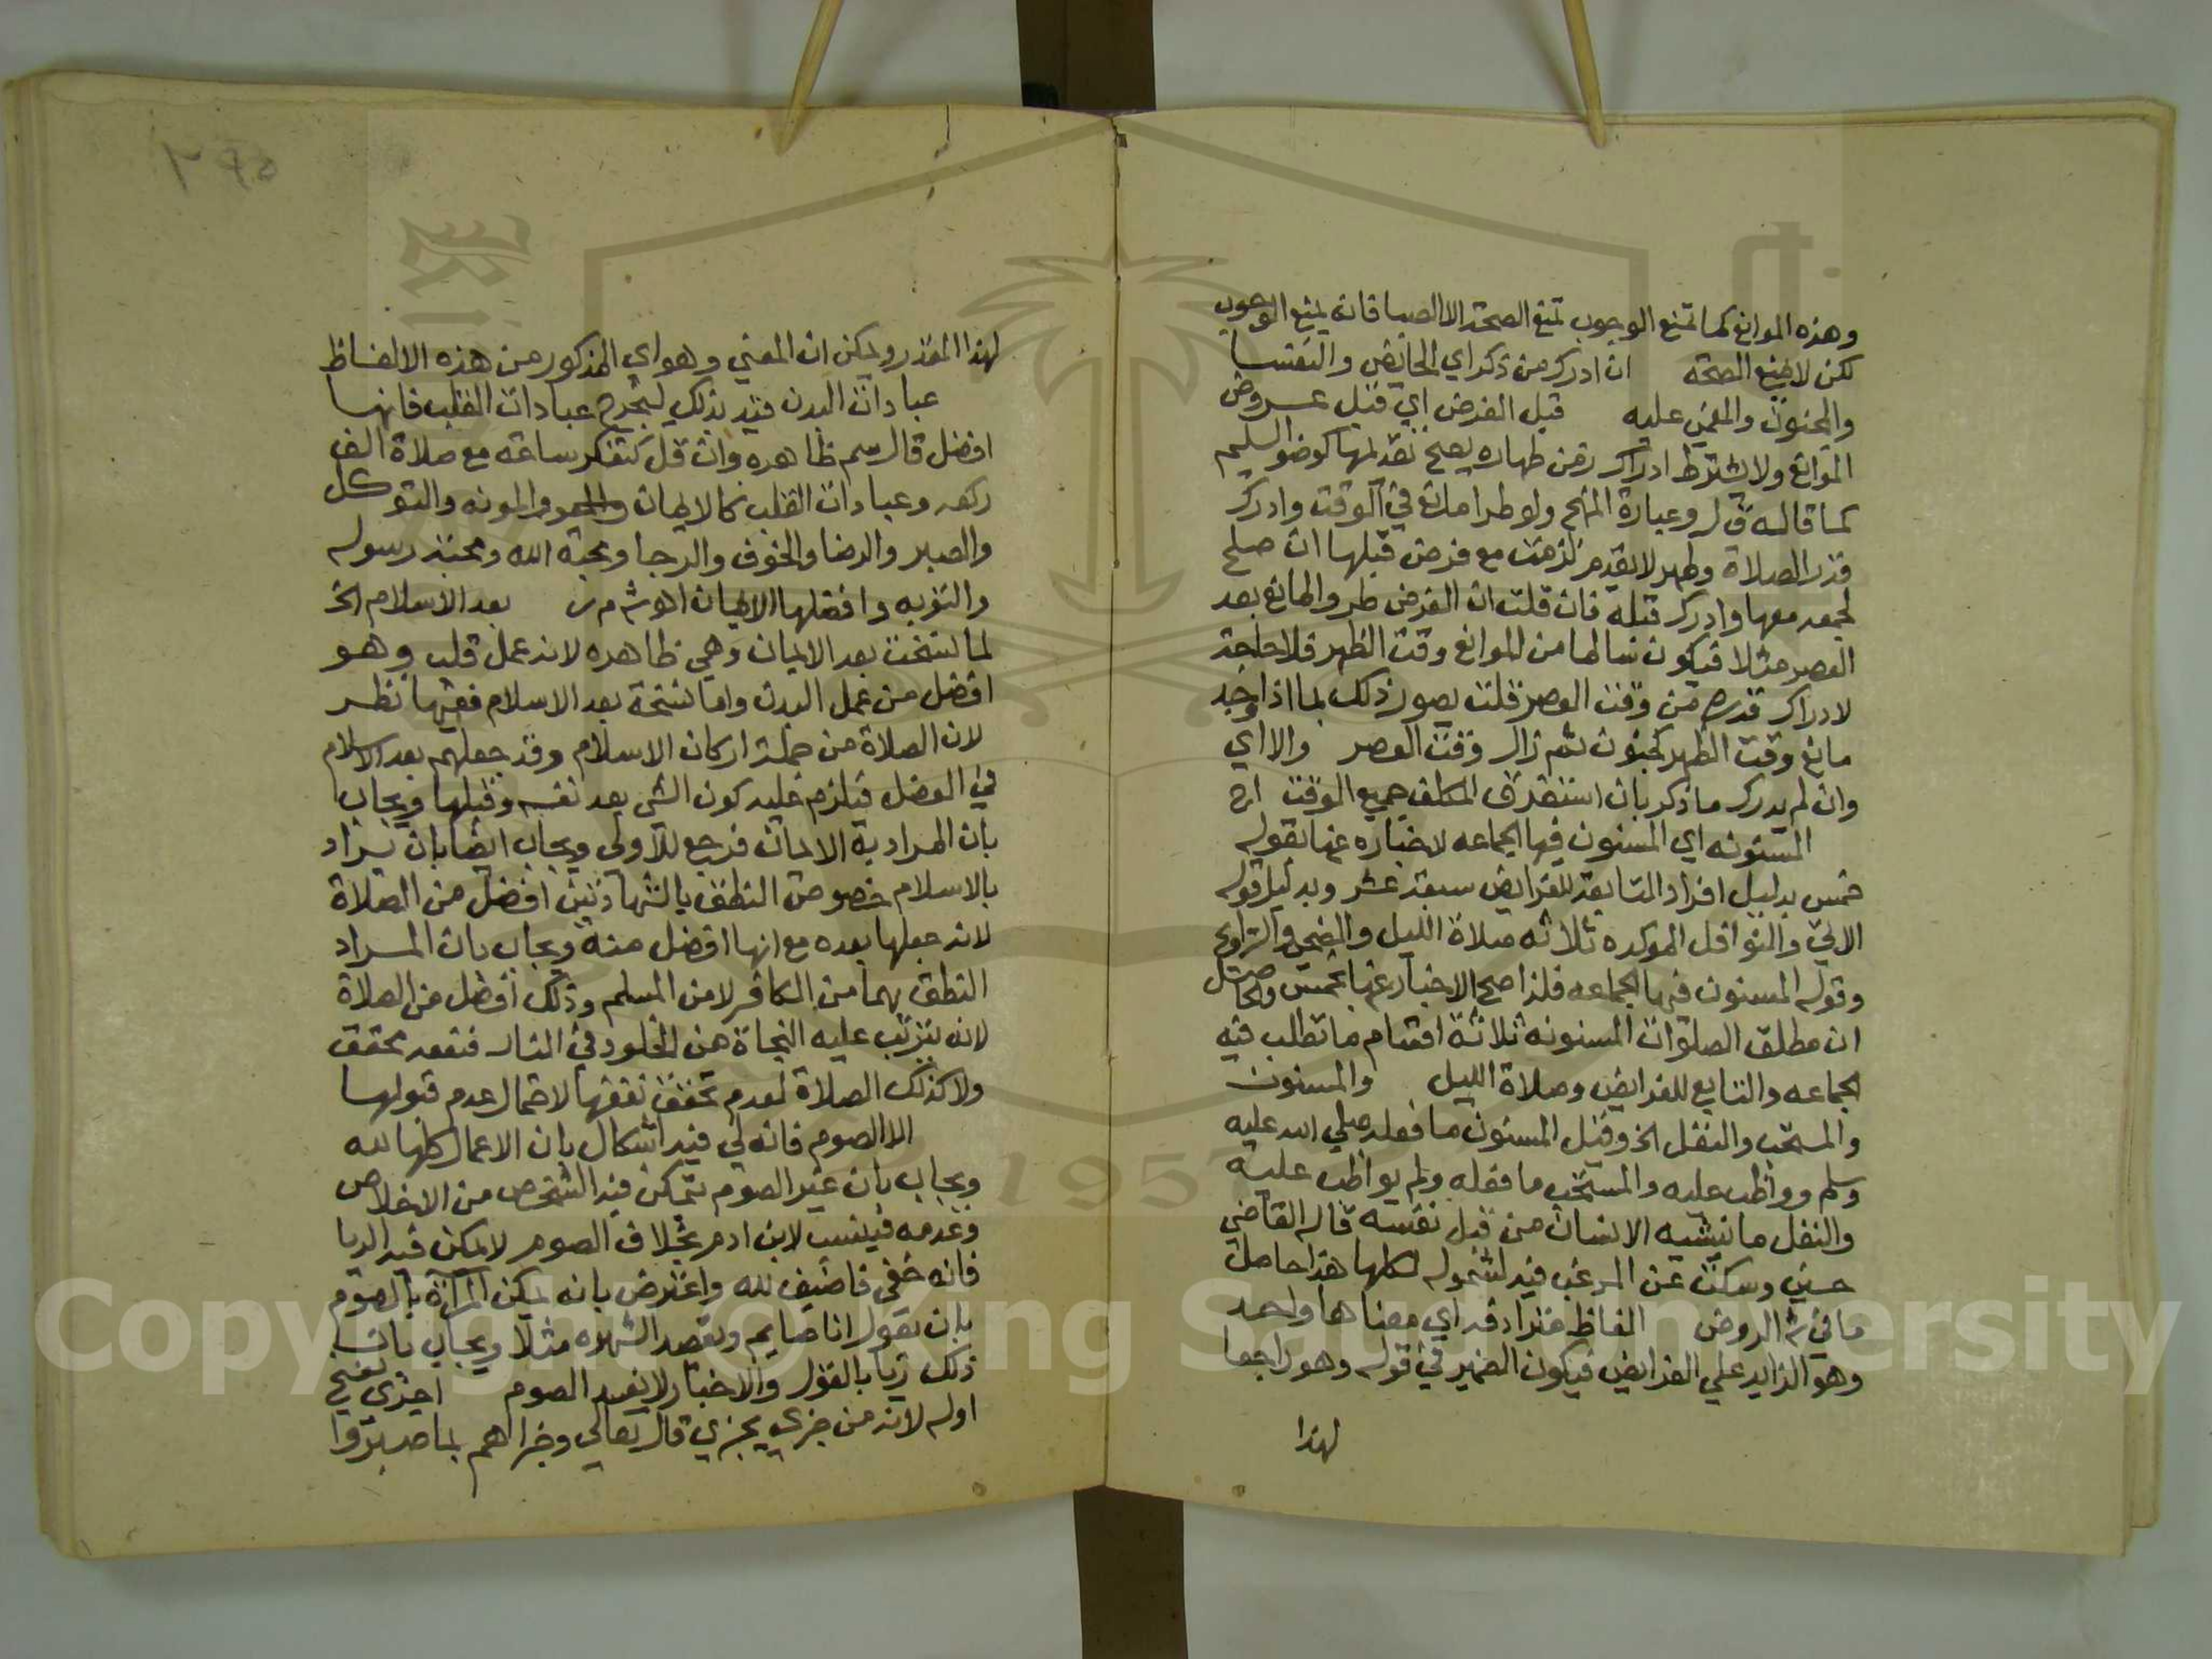 وهذه الموانع كما تمنع الوجوب تمنع الصحة الا الصبا فانه يمنع الوجوب
لكن لا يمنع الصحة ان ادرك من ذكر اي الحائض والنفسا
والمجنون والمغمي عليه قبل الفرض اي قبل عروض
الموانع ولا يشترط ادراك زمن طهاره يصح تقديمها كوضو السليم
كما قاله ق ل وعبارة المنهج ولو طرا مانع في الوقت وادرك
قدر الصلاة وطهر لا يقدم لزمت مع فرض قبلها ان صلح
لجمعه معها وادرك قبله فان قلت ان الفرض طرو المانع بعد
العصر مثلا فيكون سالما من الموانع وقت الظهر فلا حاجة
لادراك قدره من وقت العصر قلت يصور ذلك بما اذا وجد
مانع وقت الظهر كجنون ثم زال وقت العصر والا اي
وان لم يدرك ما ذكر بان استغرق المكلف جميع الوقت اج
المسنونه اي المسنون فيها الجماعه لاخباره عنها بقوله
خمس بدليل افراد التابعة للفرايض سبعة عشر وبدليل قوله
الاتي والنوافل الموكده ثلاثه صلاة الليل والضحي والتراويح
وقوله المسنون فيها الجماعه فلذا صح الاخبار عنها بخمس والحاصل
ان مطلق الصلوات المسنونه ثلاثة اقسام ما تطلب فيه
الجماعه والتابع للفرايض وصلاة الليل والمسنون
والمستحب والنفل الخ وقيل المسنون ما فعله صلي الله عليه
وسلم وواظب عليه والمستحب ما فعله ولم يواظب عليه
والنفل ما ينشيه الانسان من قبل نفسه قاله القاضي
حسين وسكت عن المرغب فيه لشموله لكلها هذا حاصل
ما في ش الروض الفاظ مترادفه اي معناها واحد
وهو الزايد علي الفرايض فيكون الضمير في قوله وهو راجعا
لهذا
لهذا المقدر ويمكن ان المعني وهو اي المذكور من هذه الالفاظ
عبادات البدن قيد بذلك ليخرج عبادات القلب فانها
افضل قال سم ظاهره وان قل كتفكر ساعة مع صلاة الف
ركعه وعبادات القلب كالايمان والمعرفة والتوكل
والصبر والرضا والخوف والرجا ومحبة الله ومحبة رسوله
والتوبه وافضلها الايمان اهـ ش م ر بعد الاسلام الخ
لما نسخت بعد الايمان وهي ظاهره لانه عمل قلب وهو
افضل من عمل البدن واما نسخة بعد الاسلام ففيها نظر
لان الصلاة من جملة اركان الاسلام وقد جعلهم بعد الاسلام
في الفضل فيلزم عليه كون الشي بعد نفسه وقبلها ويجاب
بان المراد به الايمان فرجع للاولي ويجاب ايضا بان يراد
بالاسلام خصوص النطق بالشهادتين افضل من الصلاة
لانه جعلها بعده مع انها افضل منه ويجاب بان المراد
النطق بهما من الكافر لا من المسلم وذلك افضل من الصلاة
لانه يترتب عليه النجاة من الخلود في النار فنفعه محقق
ولا كذلك الصلاة لعدم تحقق نفعها لاحتمال عدم قبولها
الا الصوم فانه لي فيه اشكال بان الاعمال كلها لله
ويجاب بان غير الصوم يتمكن فيه الشخص من الاخلاص
وعدمه فينسب لابن ادم بخلاف الصوم لا يمكن فيه الريا
فانه خفي فاضيف لله واعترض بانه يمكن المراة بالصوم
بان يقول انا صايم ويقصد الشهره مثلا ويجاب بان
ذلك ريا بالقول والاخبار لا نفس الصوم اجزي بفتح
اوله لانه من جزي يجزي قال تعالي وجزاهم بما صبروا